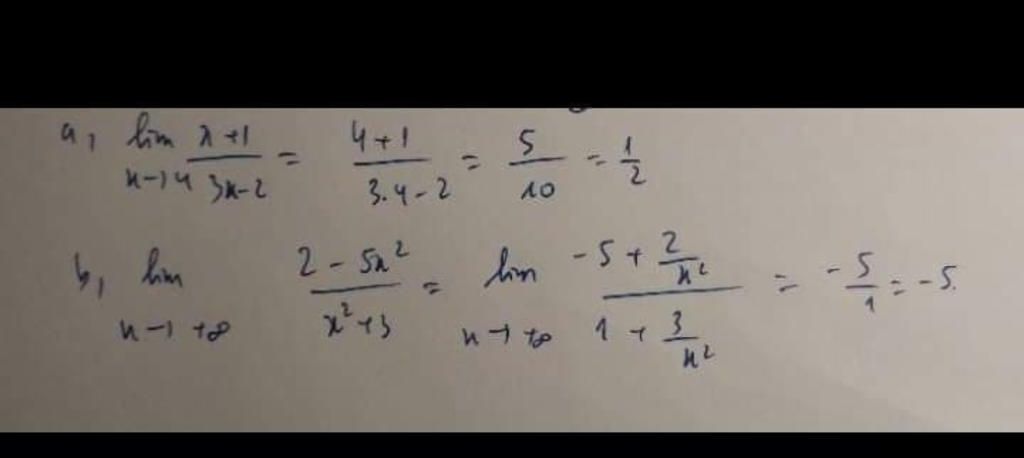 a, lim x→4 (x+1)/(3x-2) = (4+1)/(3.4-2) = 5/10 = 1/2
b, lim x→+∞ (2-5x²)/(x²+3) = lim x→+∞ (-5+2/x²)/(1+3/x²) = -5/1 = -5.